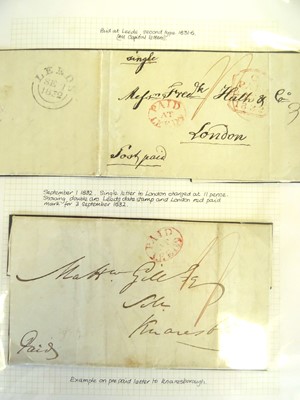 Paid at Leeds, second type 1831-2
(all capital letters)
LEEDS
SE 1
1832
single
Messrs Fredk Huth & Co
PAID
AT
LEEDS
London
Post paid
September 1 1832. Single letter to London charged at 11 pence.
Showing double arc Leeds date stamp and London red paid
mark for 3 September 1832.
PAID
AT
LEEDS
Matthw Gill Esqr
Solr
Knaresbo
Paid
Example on pre paid letter to Knaresborough.